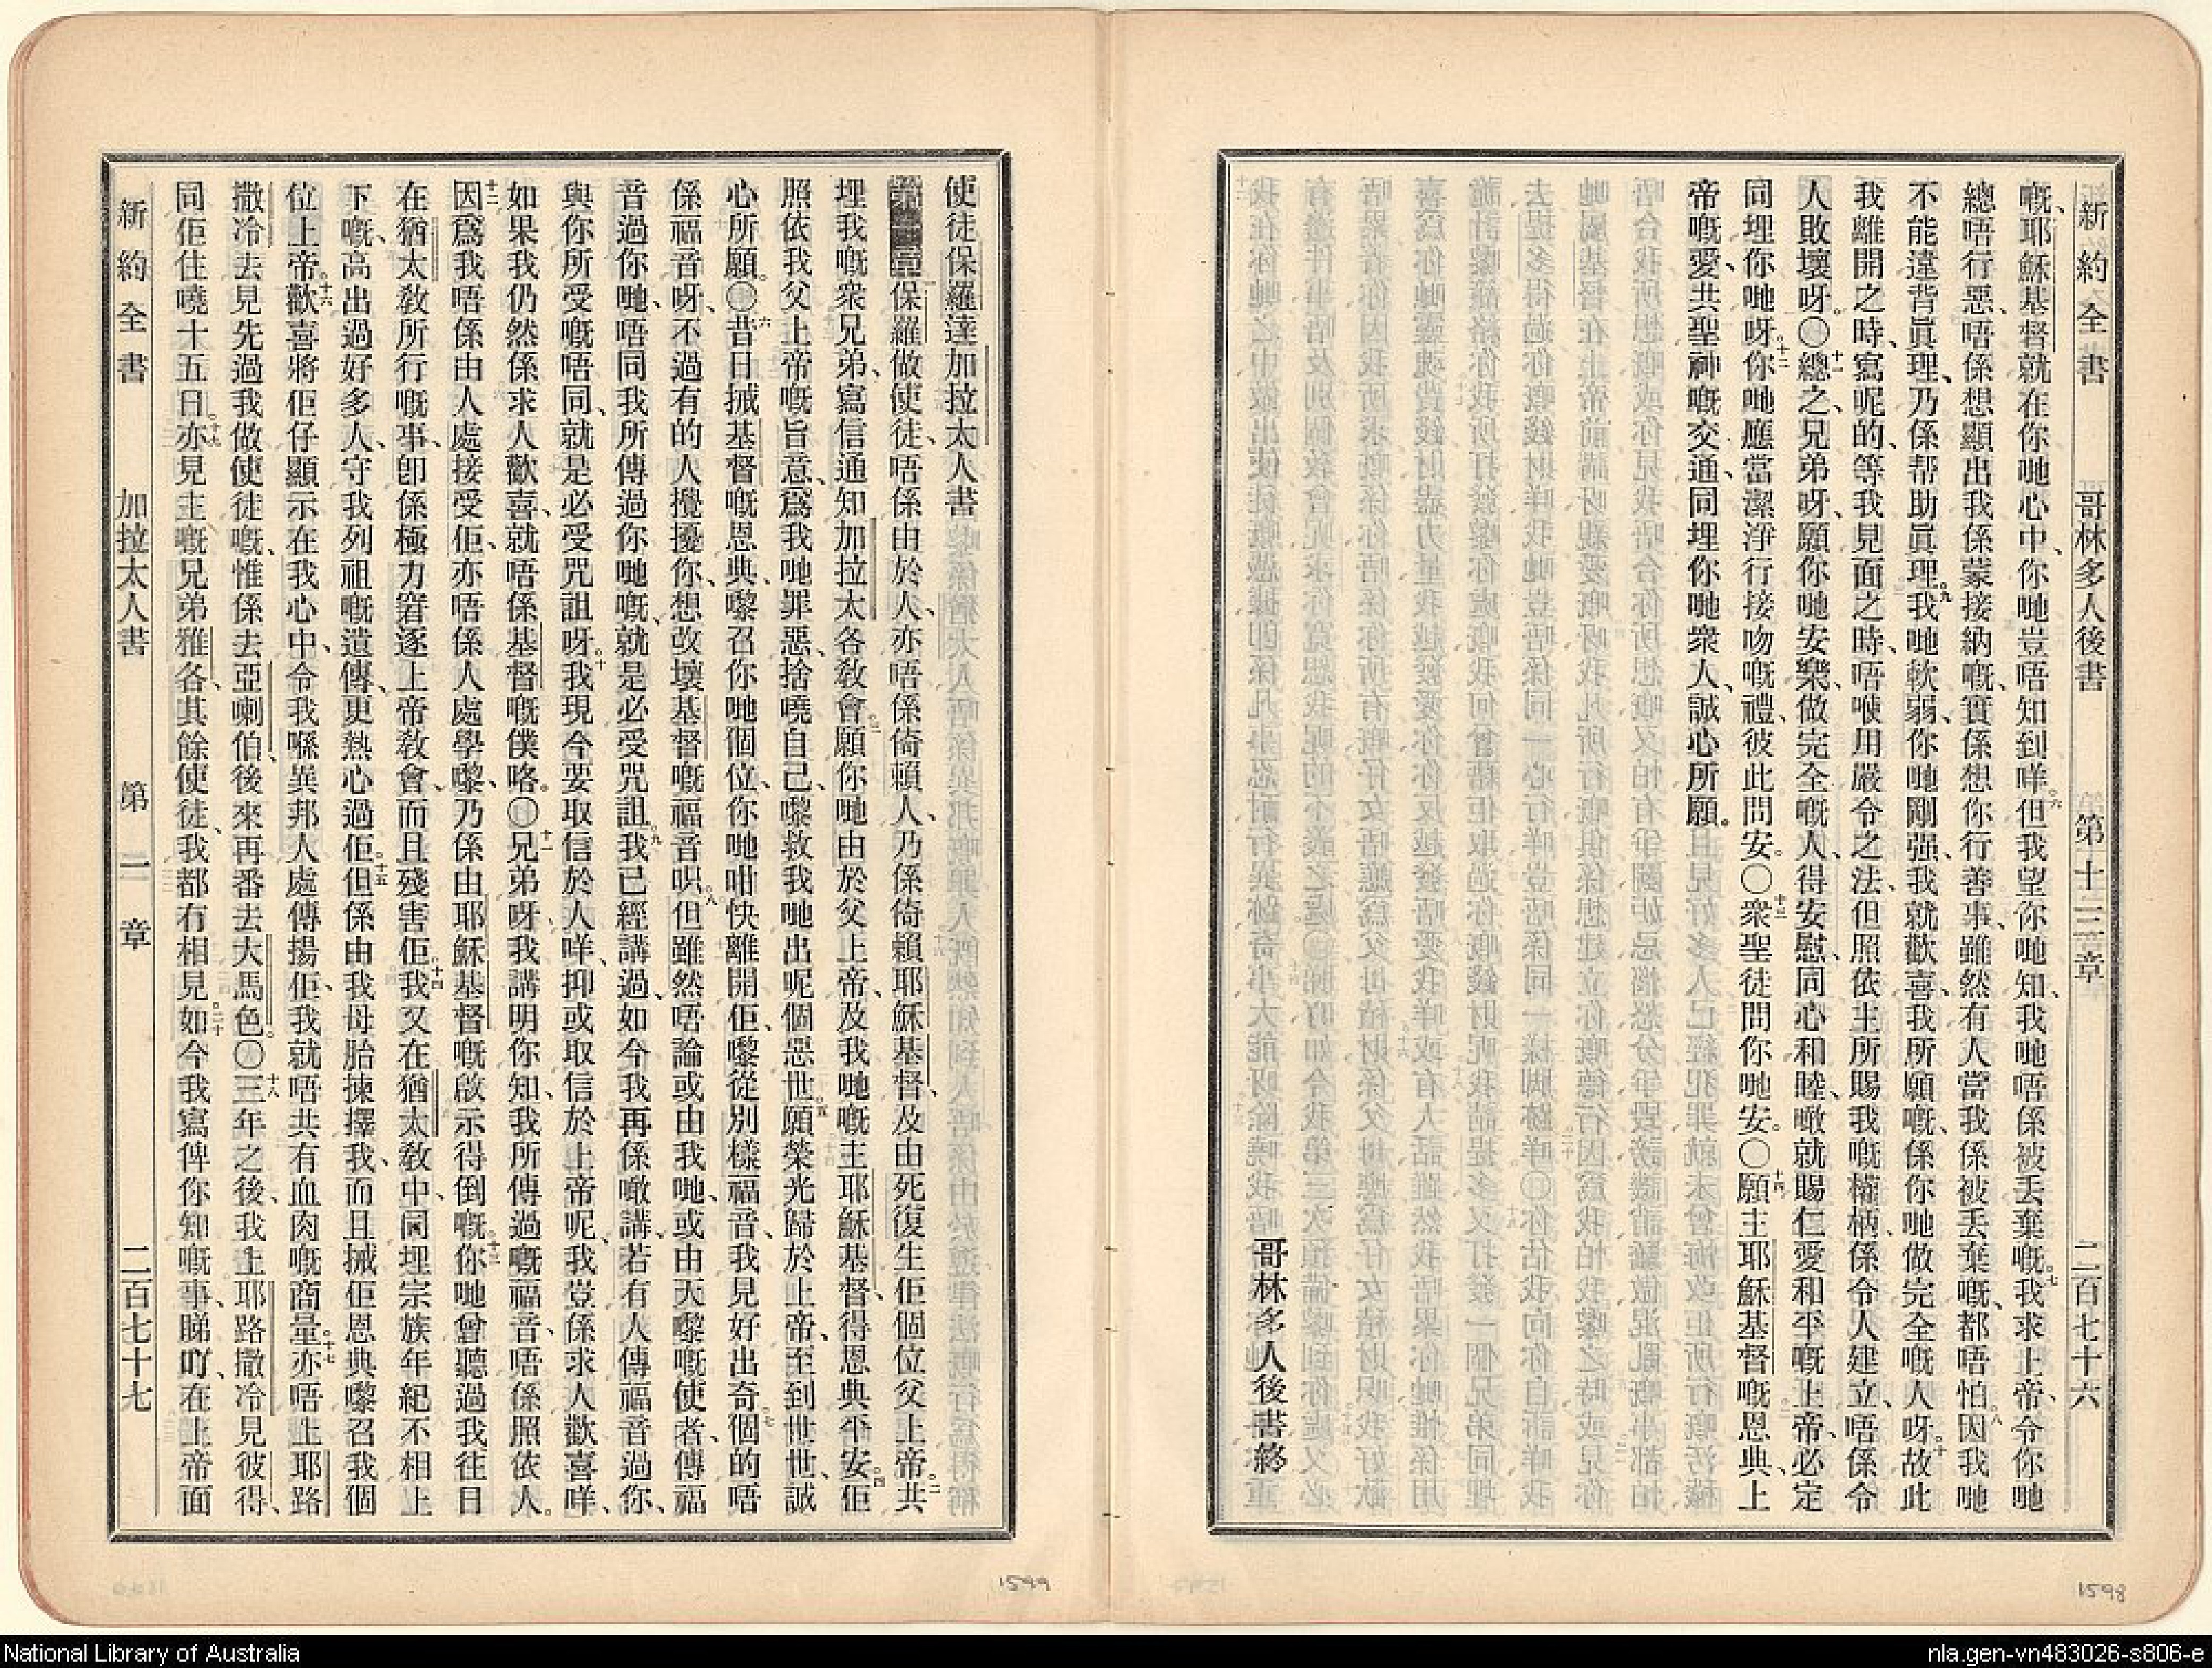 新約全書 哥林多人後書 第十三章 二百七十六
嘅、耶穌基督就在你哋心中、你哋豈唔知到咩。六但我望你哋知、我哋唔係被丟棄嘅。七我求上帝、令你哋
總唔行惡、唔係想顯出我係蒙接納嘅、實係想你行善事、雖然有人當我係被丟棄嘅、都唔怕。八因我哋
不能違背眞理、乃係帮助眞理。九我哋軟弱、你哋剛强、我就歡喜、我所願嘅、係你哋做完全嘅人呀。十故此
我離開之時、寫呢的、等我見面之時、唔使用嚴令之法、但照依主所賜我嘅權柄、係令人建立、唔係令
人敗壞呀。〇十一總之、兄弟呀、願你哋安樂、做完全嘅人、得安慰、同心和睦、噉就賜仁愛和平嘅上帝、必定
同埋你哋呀。十二你哋應當潔淨行接吻嘅禮、彼此問安。〇十三衆聖徒問你哋安。〇十四願主耶穌基督嘅恩典、上
帝嘅愛、共聖神嘅交通、同埋你哋衆人、誠心所願。
哥林多人後書終
使徒保羅達加拉太人書
第一章 保羅做使徒、唔係由於人、亦唔係倚賴人、乃係倚賴耶穌基督、及由死復生佢個位父上帝。二共
埋我嘅衆兄弟、寫信通知加拉太各敎會。三願你哋由於父上帝、及我哋嘅主耶穌基督、得恩典平安。四佢
照依我父上帝嘅旨意、爲我哋罪惡、捨曉自己、嚟救我哋出呢個惡世。五願榮光歸於上帝、至到世世、誠
心所願。〇六昔日搣基督嘅恩典、嚟召你哋個位、你哋咁快離開佢、嚟從別樣福音、我見好出奇。七個的唔
係福音呀、不過有的人攪擾你、想改壞基督嘅福音呮。八但雖然唔論或由我哋、或由天嚟嘅使者、傳福
音過你哋、唔同我所傳過你哋嘅、就是必受咒詛。九我已經講過、如今我再係噉講、若有人傳福音過你、
與你所受嘅唔同、就是必受咒詛呀。十我現今要取信於人咩、抑或取信於上帝呢、我豈係求人歡喜咩、
如果我仍然係求人歡喜、就唔係基督嘅僕咯。〇十一兄弟呀、我講明你知、我所傳過嘅福音、唔係照依人。
十二因爲我唔係由人處接受佢、亦唔係人處學嚟、乃係由耶穌基督嘅啟示得倒嘅。十三你哋曾聽過我往日
在猶太敎所行嘅事、卽係極力窘逐上帝敎會、而且殘害佢。十四我又在猶太敎中、同埋宗族年紀不相上
下嘅、高出過好多人、守我列祖嘅遺傳、更熱心過佢。十五但係由我母胎揀擇我、而且搣佢恩典嚟召我個
位上帝。十六歡喜將佢仔顯示在我心中、令我喺異邦人處傳揚佢、我就唔共有血肉嘅商量。十七亦唔上耶路
撒冷去見先過我做使徒嘅、惟係去亞喇伯、後來再番去大馬色。〇十八三年之後、我上耶路撒冷見彼得、
同佢住曉十五日。十九亦見主嘅兄弟雅各、其餘使徒、我都有相見。二十如今我寫俾你知嘅事、睇吖、在上帝面
新約全書 加拉太人書 第一章 二百七十七
1598
1599
National Library of Australia
nla.gen-vn483026-s806-e